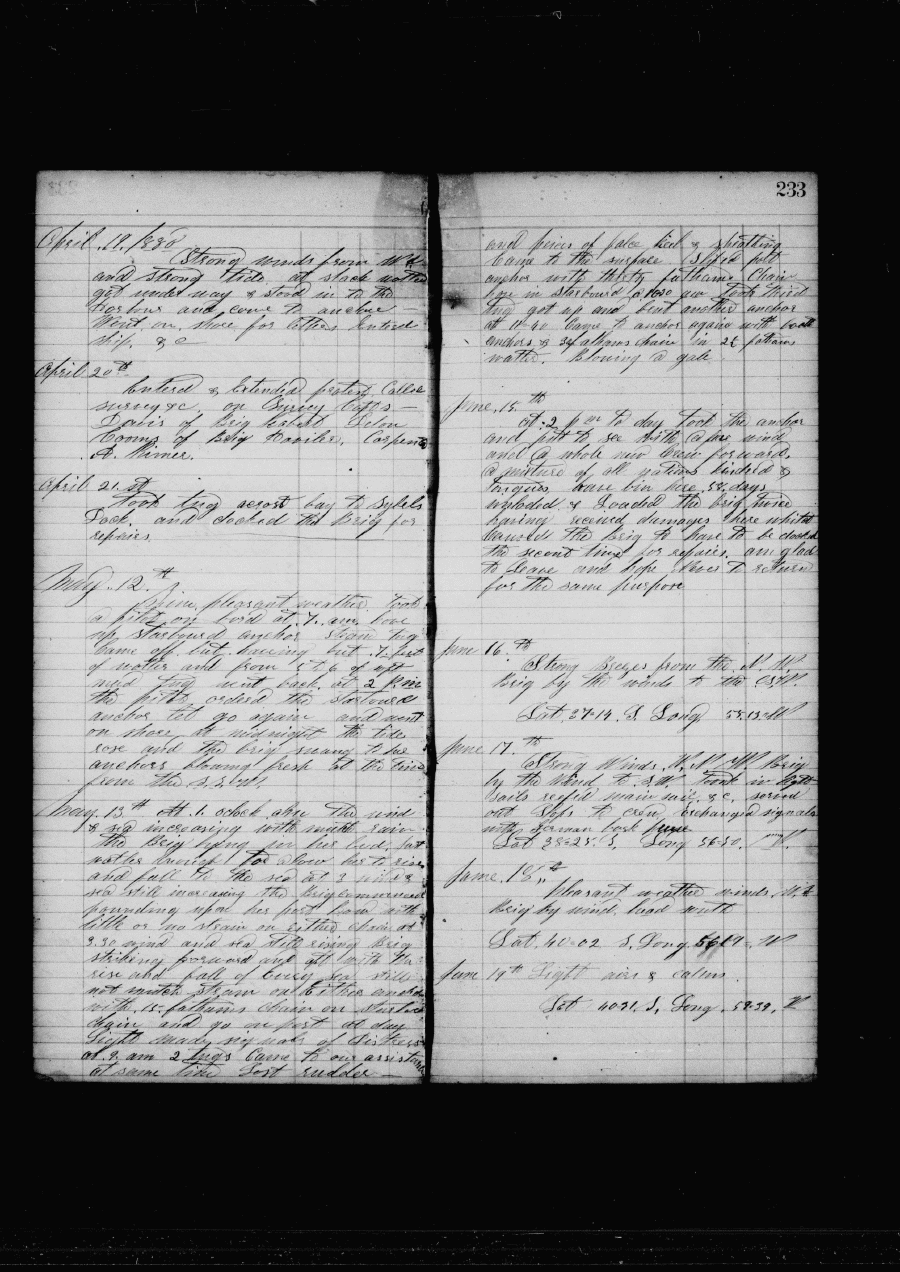 233
April 19. 1880
Strong winds from
and strong tide at slack water
got under way & stood in to the
Harbour and come to anchor —
Went on shore for letters entered
ship, &c
April 20th
Enterd & Extended protest Called
survey &c on Survey Capts —
Davis of Brig
of Brig Carpenter
A.
April 21. st
Took tug acrost bay to
Dock and docked the Brig for
repairs.
May. 12. th
Fine pleasant weather took
a pilot on bord at 7. am. hove
up starboard anchor steam tug
Came off but having but 7. feet
of watter and from 5 to 6 of
and tug went back. at 2 P.m
the pilot orderd the starbourd
anchor let go again and went
on shore, at midnight the tide
rose and the brig swang to her
anchors blowing fresh at the time
from the S.S.W.
May. 13th At 1. oclock a.m. The wind
& sea increasing with much rain
the Brig lying in her bed, not
watter enough to alow her to rise
and fall to the sea at 3 wind &
sea still increasing the Brig commenced
pounding upon her port bow with
little or no strain on either chain at
3.30 wind and sea still rising Brig
striking forward and aft with the
rise and fall of every sea still
not much strain on either anchor
with 15. fathoms chain on Starboard
again and go on port at day
Light made signals of distress
at 9. am 2 tugs Came to our assistance
at same time Lost rudder —
and pieces of false keel & sheathing
Came to the surface Sliped port
anchor with thirty fathoms Chain
hove in starbourd a 10.30 am took third
tug got up and bent another anchor
at 11-40 Came to anchor again with both
anchors & 30 fathoms chain in 2½ fathoms
watter. Blowing a gale
June. 15. th
At 2 p m to day took the anchor
and put to sea with a fine wind
and a whole new Crew forward.
a mixture of all nations kindred &
tongues have bin here 58 days
unloded & Loaded the brig twice
having received damages here which
caused the Brig to have to be docked
the second time for repairs. am glad
to Leave and hope Never to return
for the same purpose
June 16. th
Strong Breezes from the N. W.
Brig by the winds to the
Lat. 37-14. S. Long
June 17. th
Strong Winds N. N. W. Brig
by the Wind to S.W. took in light
sails reefd main sail, &c. served
out Slops to crew Exchanged signals
with German bark
Lat 38-25. S. Long 56-50. W.
June. 18. th
Pleasant weather winds
Brig by wind. head south
Lat. 40-02 S. Long. W
June 19th Light airs & calms
Lat 40-31. S, Long. 58-39. W